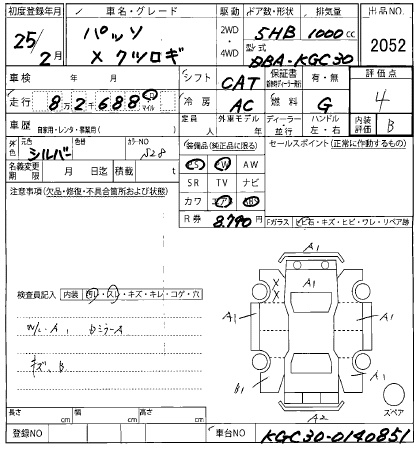 初度登録年月 車名・グレード 駆動 ドア数・形状 排気量 出品NO.
25/2月 パッソ 2WD・4WD 5HB 1000cc 2052
X クツロギ 型式 DBA-KGC30
車検 年 月 シフト CAT 保証書 有・無 評価点
走行 8万2千688 km マイル 冷房 AC 燃料 G 4
車歴 自家用・レンタ・事業用( ) 定員 人 外車モデル ディーラー・並行 ハンドル 左・右 内装評価 B
外色 元色 シルバー 色替 カラーNO S28 装備品(純正品に限る) セールスポイント(正常に作動するもの)
名義変更期限 月 日迄 積載 t PS PW AW
注意事項(欠品・修復・不具合箇所および状態) SR TV ナビ
カワ エアB ABS
R券 8,790円
Fガラス 飛石・キズ・ヒビ・ワレ・リペア跡
A1
A1
検査員記入 内装 汚レ・スレ・キズ・キレ・コゲ・穴
X X
W/L A1 DミラーA
A1 A1
キズ、B
B1 A1
スペア
A2
長さ cm 幅 cm 高さ cm
登録NO 車台NO KGC30-0140851